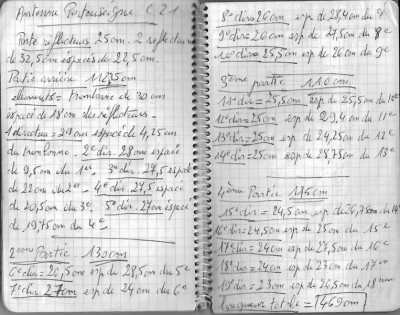 Antenne Portenseigne C 21
Porte réflecteurs 25 cm. 2 reflecteurs
de 32,5cm espacés de 22,5cm.
Partie arrière 112,5cm
elements = trombone de 30 cm
espacé de 18cm des réflecteurs.
1 directeur = 29cm espacé de 4,25cm
du trombone. 2e dir. 28cm espacé
de 9,5cm du 1er. 3e dir. 27,5 espacé
de 22cm du 2e. 4e dir 27,5 espacé
de 20,5cm du 3e. 5e dir. 27cm espacé
de 19,75cm du 4e.
2eme Partie. 130cm
6e dir = 26,5cm esp de 28,5cm du 5e
7e dir 27cm esp de 24cm du 6e
8e dir = 26cm esp de 28,4cm du
9e dir = 26cm esp de 27,5cm du 8e
10e dir = 25,5cm esp de 26cm du 9e
3eme partie 110cm
11e dir = 25,5cm esp de 25,5cm du 10e
12e dir = 25cm esp de 29,4cm du 11e
13e dir = 25cm esp de 24,25cm du 12e
14e dir = 25cm esp de 28,75cm du 13e
4eme Partie 115cm
15e dir = 24,5cm esp de 26,75cm du 14e
16e dir = 24,5cm esp de 25cm du 15e
17e dir = 24cm esp de 27,5cm du 16e
18e dir = 24cm esp de 23cm du 17e
19e dir = 23cm esp de 24,5cm du 18e
longueur totale = 469cm